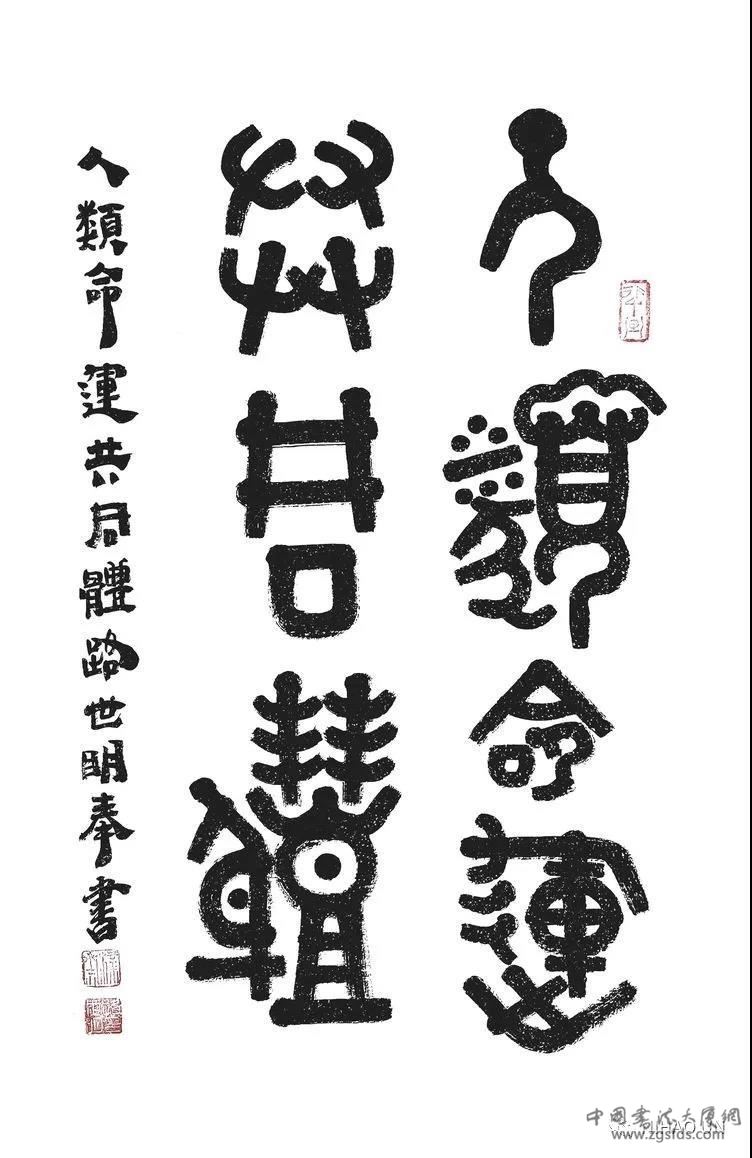 人類命運
共同體
人類命運共同體路世明奉書
中国书法大厦網
www.zgsfds.com